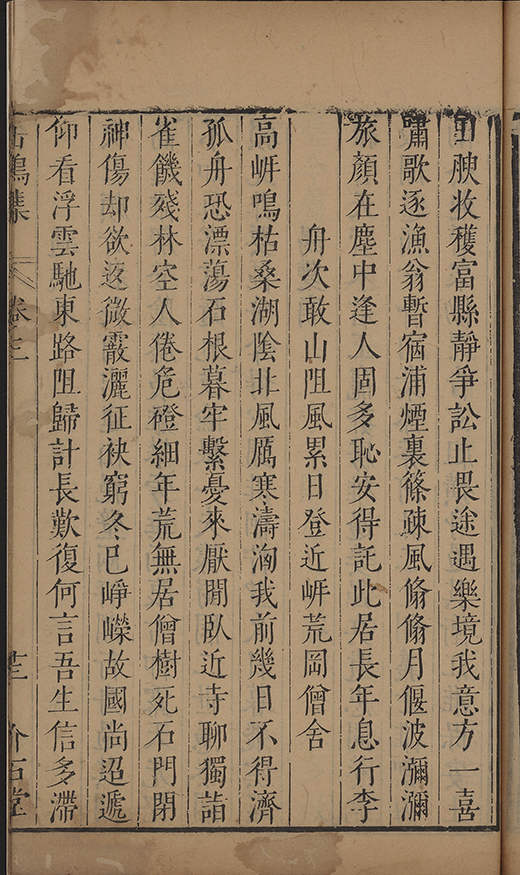 土腴收穫富縣靜爭訟止畏途遇樂境我意方一喜
嘯歌逐漁翁暫宿浦煙裏篠疎風翛翛月偃波瀰瀰
旅顏在塵中逢人固多恥安得託此居長年息行李
舟次敢山阻風累日登近㟁荒岡僧舍
高㟁鳴枯桑湖陰北風厲寒濤洶我前幾日不得濟
孤舟恐漂蕩石根暮牢繫憂來厭閒臥近寺聊獨詣
雀饑殘林空人倦危磴細年荒無居僧樹死石門閉
神傷却欲返微霰灑征袂窮冬已崢嶸故國尚迢遞
仰看浮雲馳東路阻歸計長歎復何言吾生信多滯
鳴集 卷